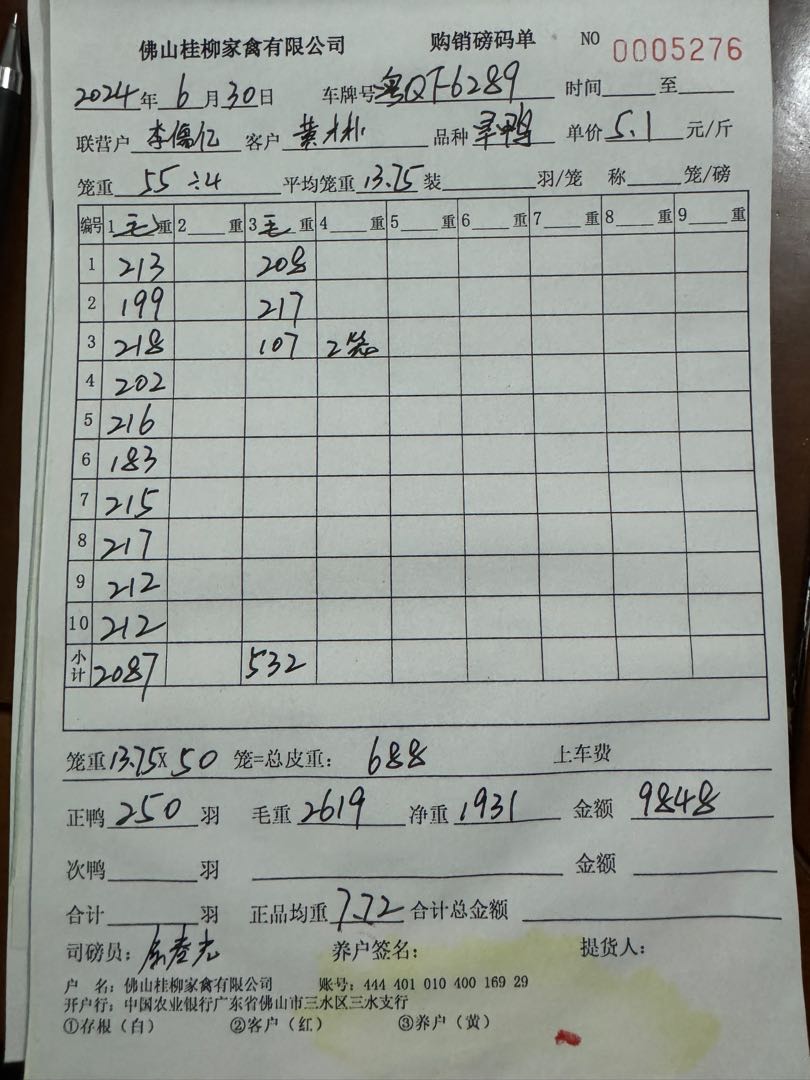 佛山桂柳家禽有限公司 购销磅码单 NO 0005276
2024年6月30日 车牌号粤QT-6289 时间 至
联营户 李儒亿 客户 黄木林 品种 旱鸭 单价5.1元/斤
笼重 55÷4 平均笼重13.75装 羽/笼 称 笼/磅
编号 1毛重 2 重 3毛重 4 重 5 重 6 重 7 重 8 重 9 重
1 213 208
2 199 217
3 218 107 2笼
4 202
5 216
6 183
7 215
8 217
9 212
10 212
小计 2087 532
笼重13.75×50 笼=总皮重：688 上车费
正鸭250羽 毛重2619 净重1931 金额 9848
次鸭 羽 金额
合计 羽 正品均重7.72 合计总金额
司磅员： 养户签名： 提货人：
户 名：佛山桂柳家禽有限公司 账号：444 401 010 400 169 29
开户行：中国农业银行广东省佛山市三水区三水支行
①存根（白） ②客户（红） ③养户（黄）